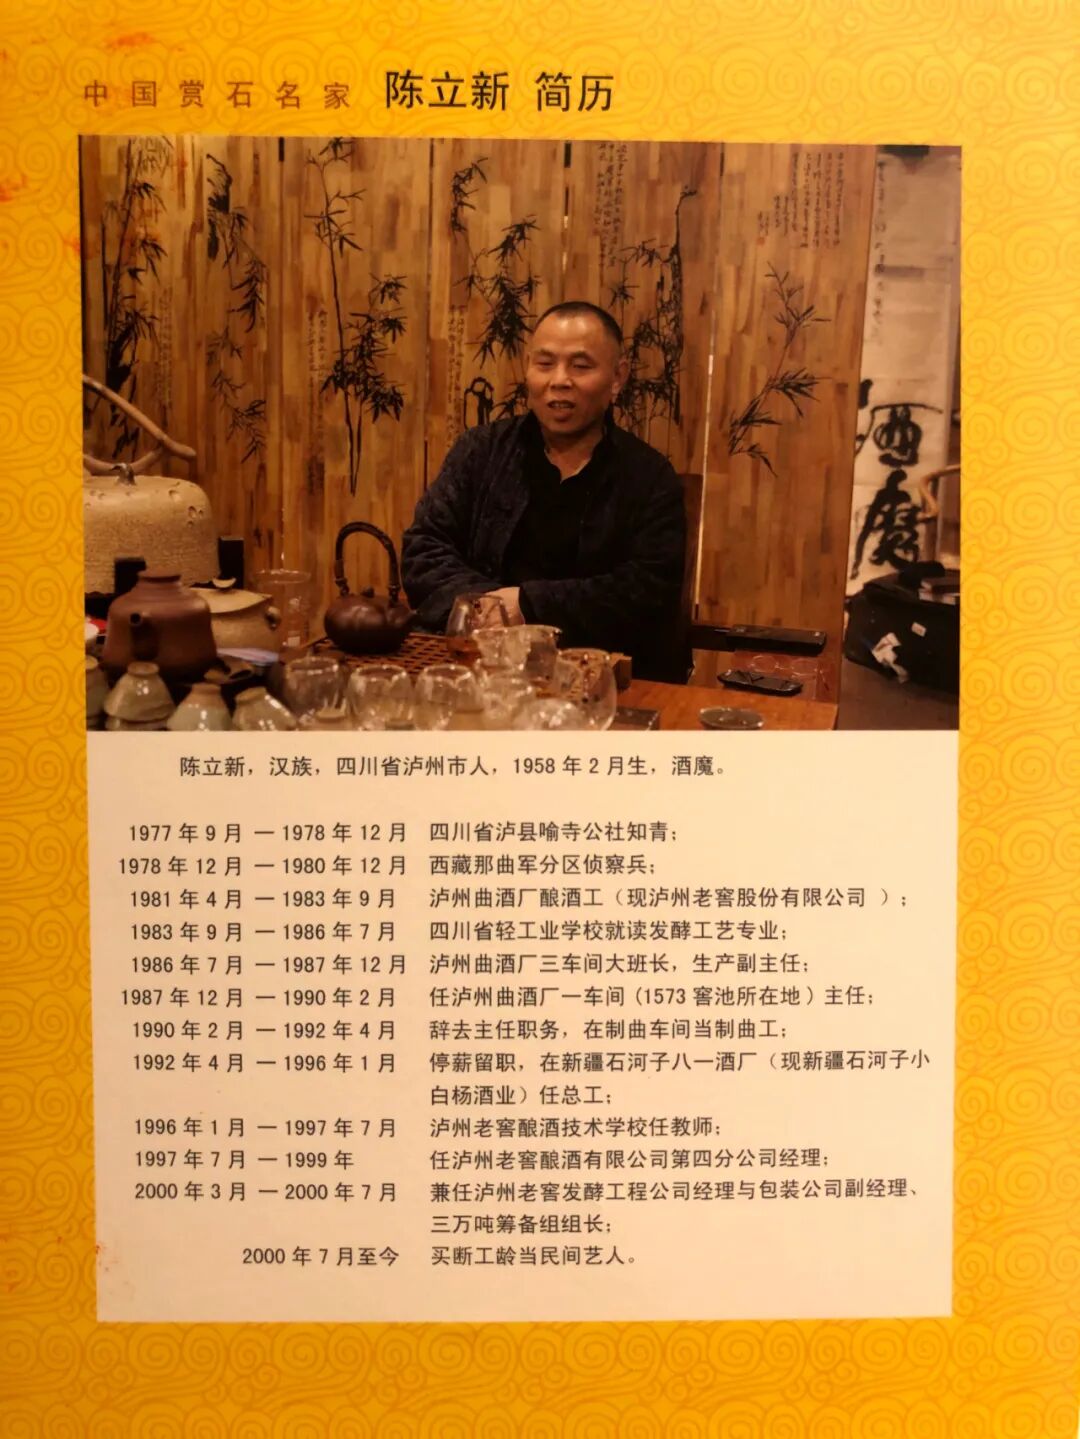 中国赏石名家 陈立新 简历
酒魔
陈立新，汉族，四川省泸州市人，1958年2月生，酒魔。
1977年9月 — 1978年12月 四川省泸县喻寺公社知青；
1978年12月 — 1980年12月 西藏那曲军分区侦察兵；
1981年4月 — 1983年9月 泸州曲酒厂酿酒工（现泸州老窖股份有限公司 ）；
1983年9月 — 1986年7月 四川省轻工业学校就读发酵工艺专业；
1986年7月 — 1987年12月 泸州曲酒厂三车间大班长，生产副主任；
1987年12月 — 1990年2月 任泸州曲酒厂一车间(1573窖池所在地)主任；
1990年2月 — 1992年4月 辞去主任职务，在制曲车间当制曲工；
1992年4月 — 1996年1月 停薪留职，在新疆石河子八一酒厂（现新疆石河子小
白杨酒业）任总工；
1996年1月 — 1997年7月 泸州老窖酿酒技术学校任教师；
1997年7月 — 1999年 任泸州老窖酿酒有限公司第四分公司经理；
2000年3月 — 2000年7月 兼任泸州老窖发酵工程公司经理与包装公司副经理、
三万吨筹备组组长；
2000年7月至今 买断工龄当民间艺人。